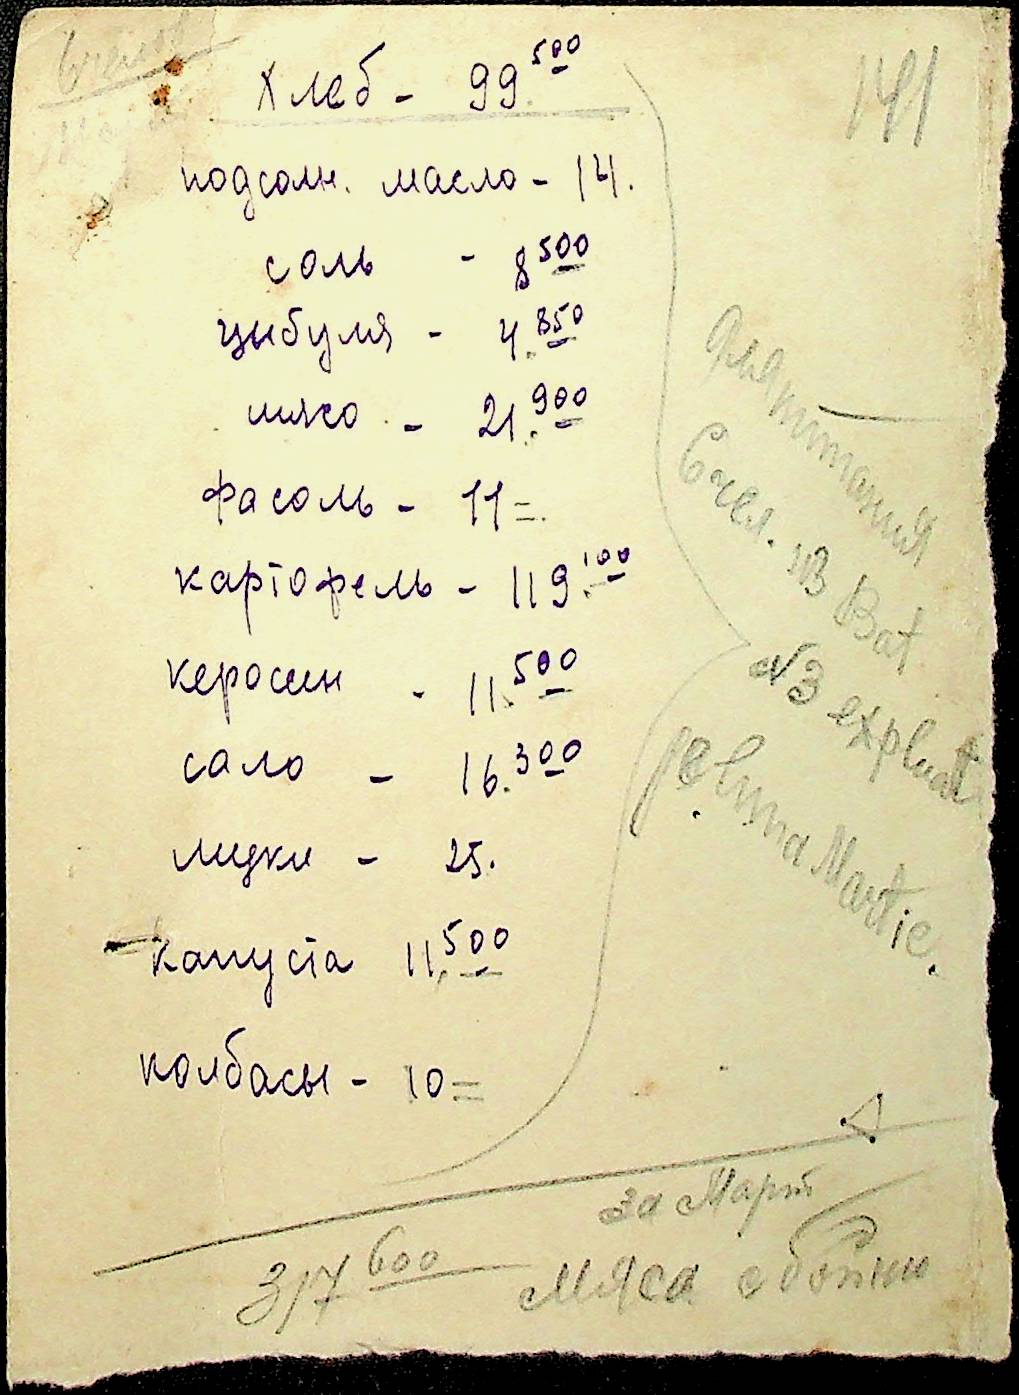 6 чел.
141
Хлеб - 99.500
подсолн. масло - 14.
соль - 8500
цыбуля - 4.850
мясо - 21.900
фасоль - 11=
картофель - 119.100
керосин - 11.500
сало - 16.300
мидки - 25.
капуста 11.500
колбасы - 10=
Для питания
6 чел. из Bat
N3 exploat
pe luna Martie.
317 600
за Март
мяса с бойни